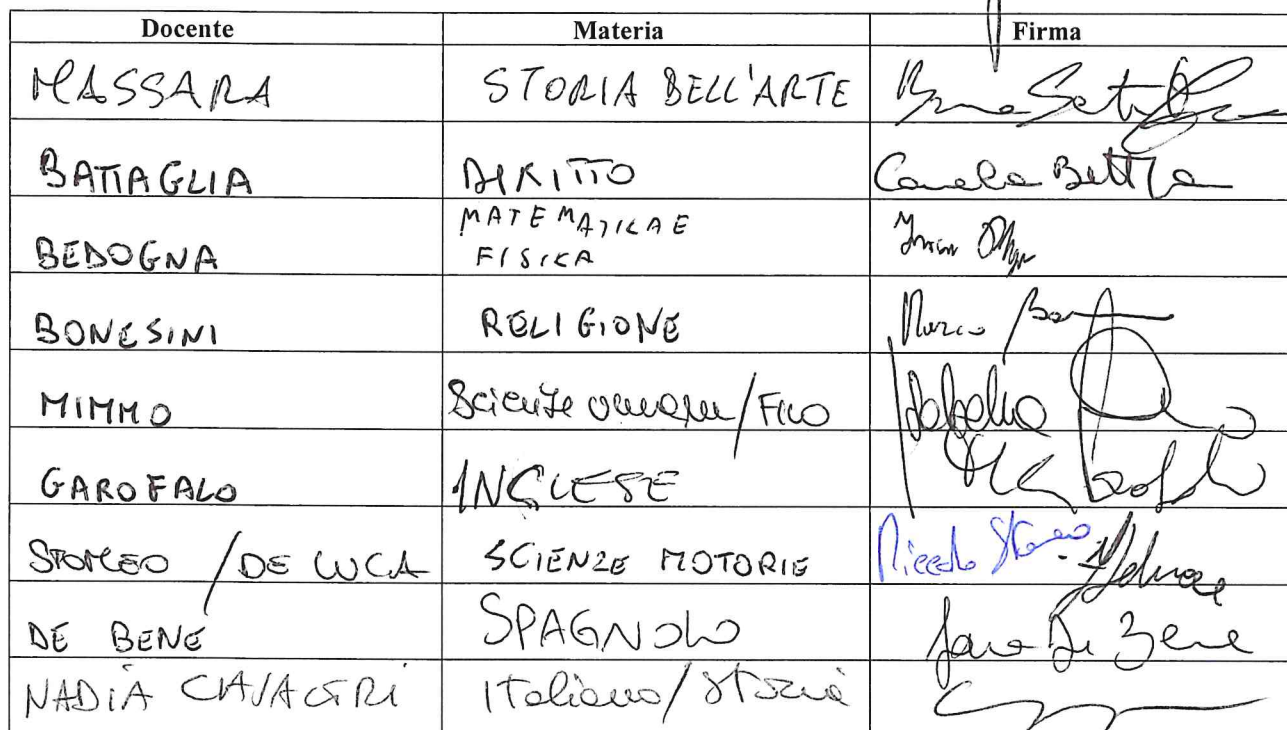 Docente Materia Firma
MASSARA STORIA DELL'ARTE
BATTAGLIA DIRITTO
BEDOGNA MATEMATICA E
FISICA
BONESINI RELIGIONE Marco
MIMMO Scienze umane/Filo
GAROFALO INGLESE
STOMEO / DE LUCA SCIENZE MOTORIE
DE BENE SPAGNOLO De Bene
NADIA Italiano/Storia